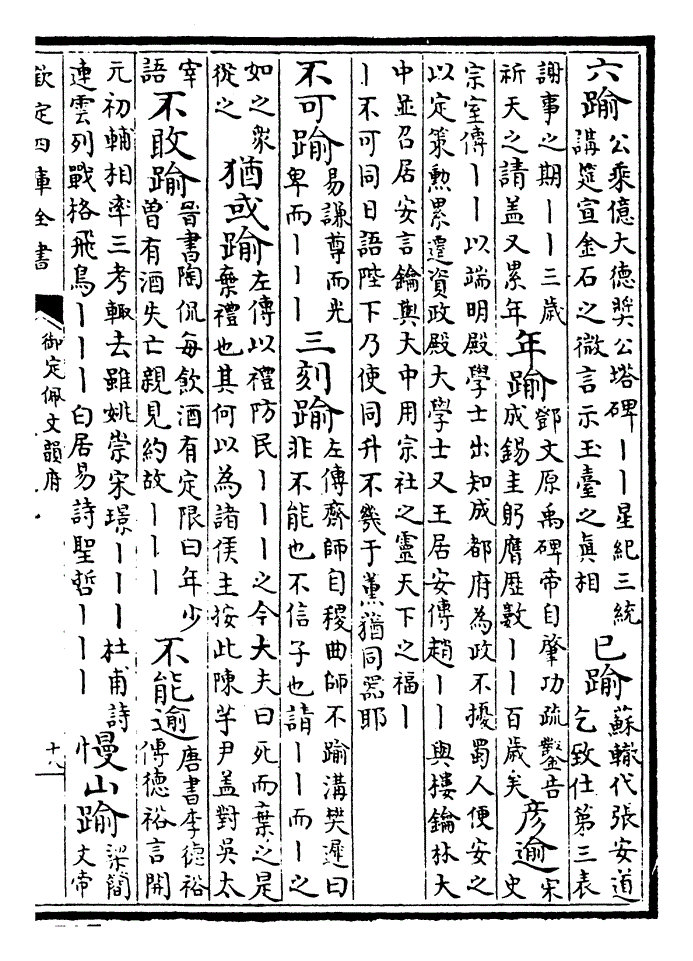 六踰 公乘億大德奬公塔碑丨丨星紀三統
講筵宣金石之微言示玉臺之眞相
已踰 蘇轍代張安道
乞致仕第三表
謝事之期丨丨三歲
祈天之請盖又累年
年踰 鄧文原禹碑帝自肇功疏鑿告
成錫圭躬膺歴數丨丨百歲矣
彦逾 宋
史
宗室傳丨丨以端明殿學士出知成都府為政不擾蜀人便安之
以定策勲累遷資政殿大學士又王居安傳趙丨丨與樓鑰林大
中並召居安言鑰與大中用宗社之靈天下之福丨
丨不可同日語陛下乃使同升不幾于薰猶同器耶
不可踰 易謙尊而光
卑而丨丨丨
三刻踰 左傳齊師自稷曲師不踰溝樊遲曰
非不能也不信子也請丨丨而丨之
如之衆
從之
猶或踰 左傳以禮防民丨丨丨之今大夫曰死而棄之是
棄禮也其何以為諸侯主按此陳芋尹盖對吳太
宰
語
不敢踰 晉書陶侃每飲酒有定限曰年少
曽有酒失亡親見約故丨丨丨
不能逾 唐書李德裕
傳德裕言開
元初輔相率三考輙去雖姚崇宋璟丨丨丨杜甫詩
連雲列戰格飛鳥丨丨丨白居易詩聖哲丨丨丨
慢山踰 梁簡
文帝
欽定四庫全書
御定佩文韻府
十八